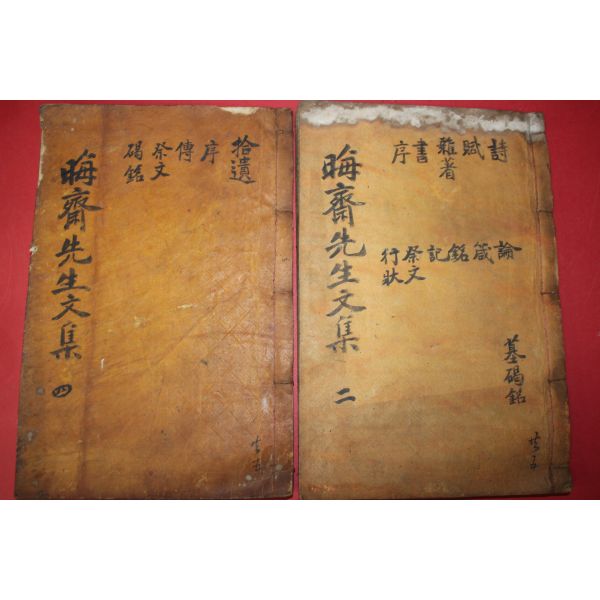 詩
賦
雜著
書
序
論
箴
銘
記
祭文
行狀
墓碣銘
晦齋先生文集
二
共五
拾遺
序
傳
祭文
碣銘
晦齋先生文集
四
共五